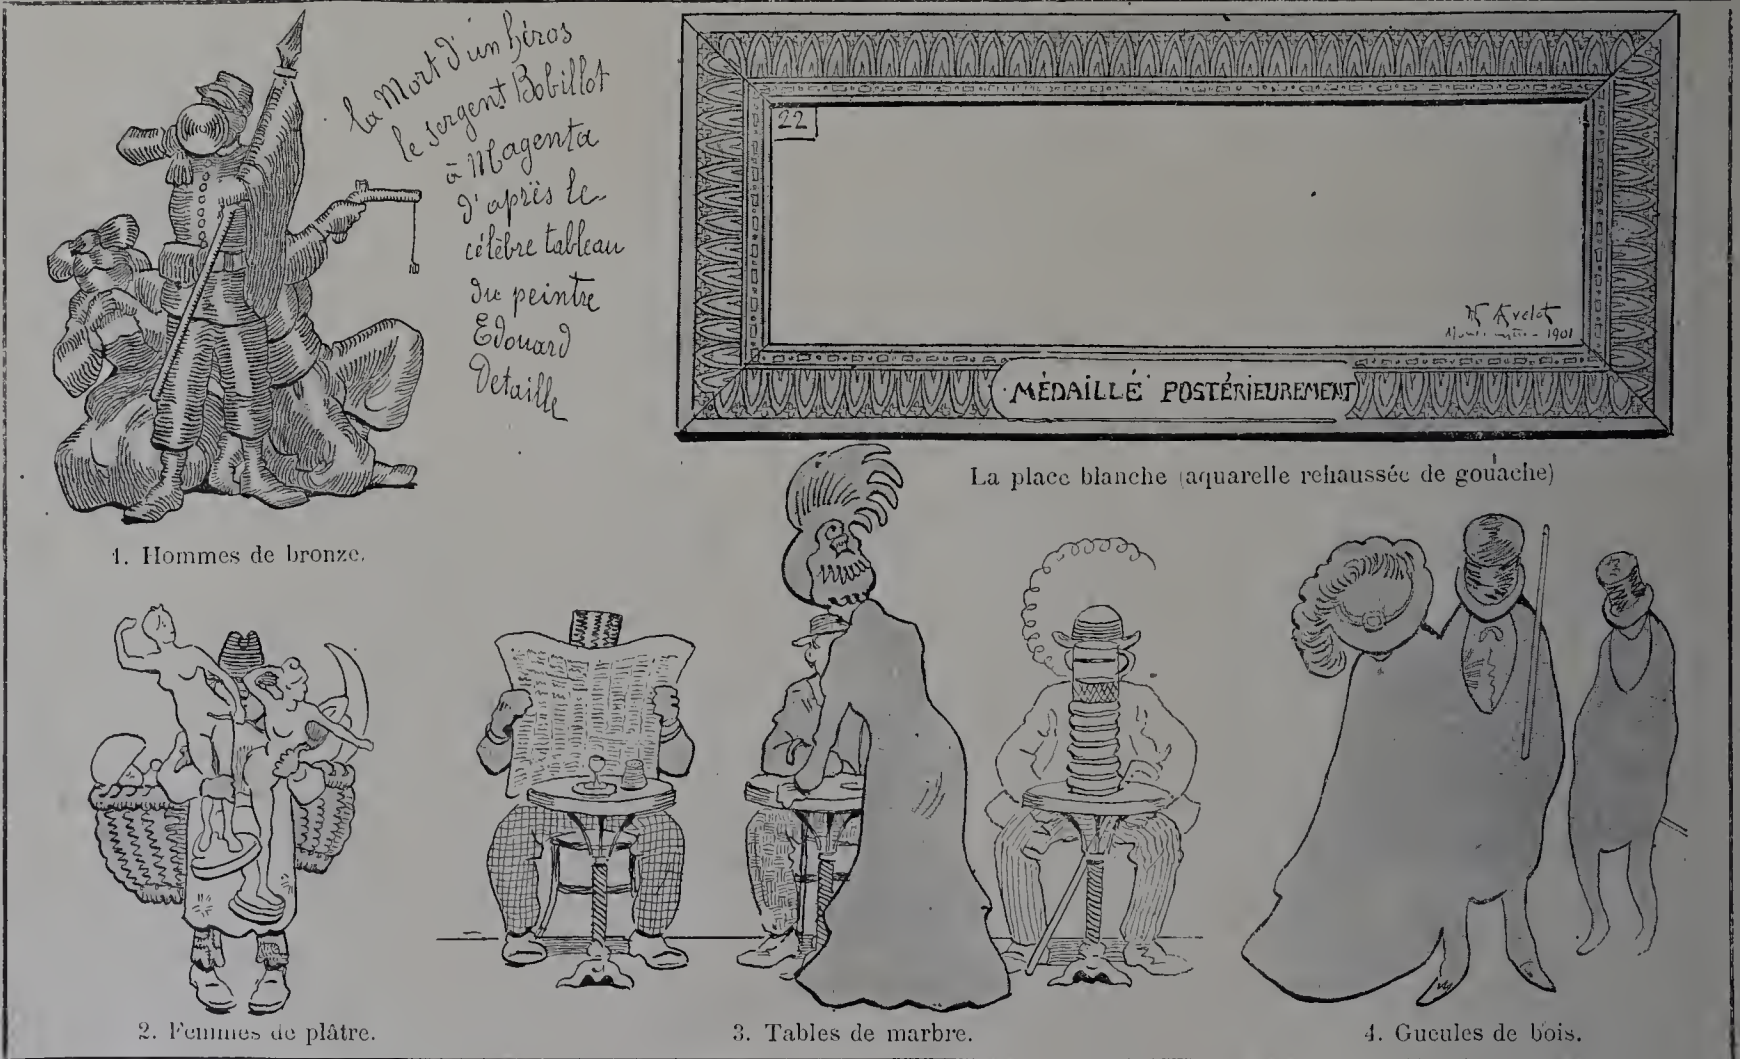 la Mort d'un héros
le sergent Bobillot
à Magenta
d'après le
célèbre tableau
du peintre
Edouard
Detaille
22
H Avelot
1901
MÉDAILLÉ POSTÉRIEUREMENT
La place blanche (aquarelle rehaussée de gouache)
1. Hommes de bronze.
2. Femmes de plâtre.
3. Tables de marbre.
4. Gueules de bois.